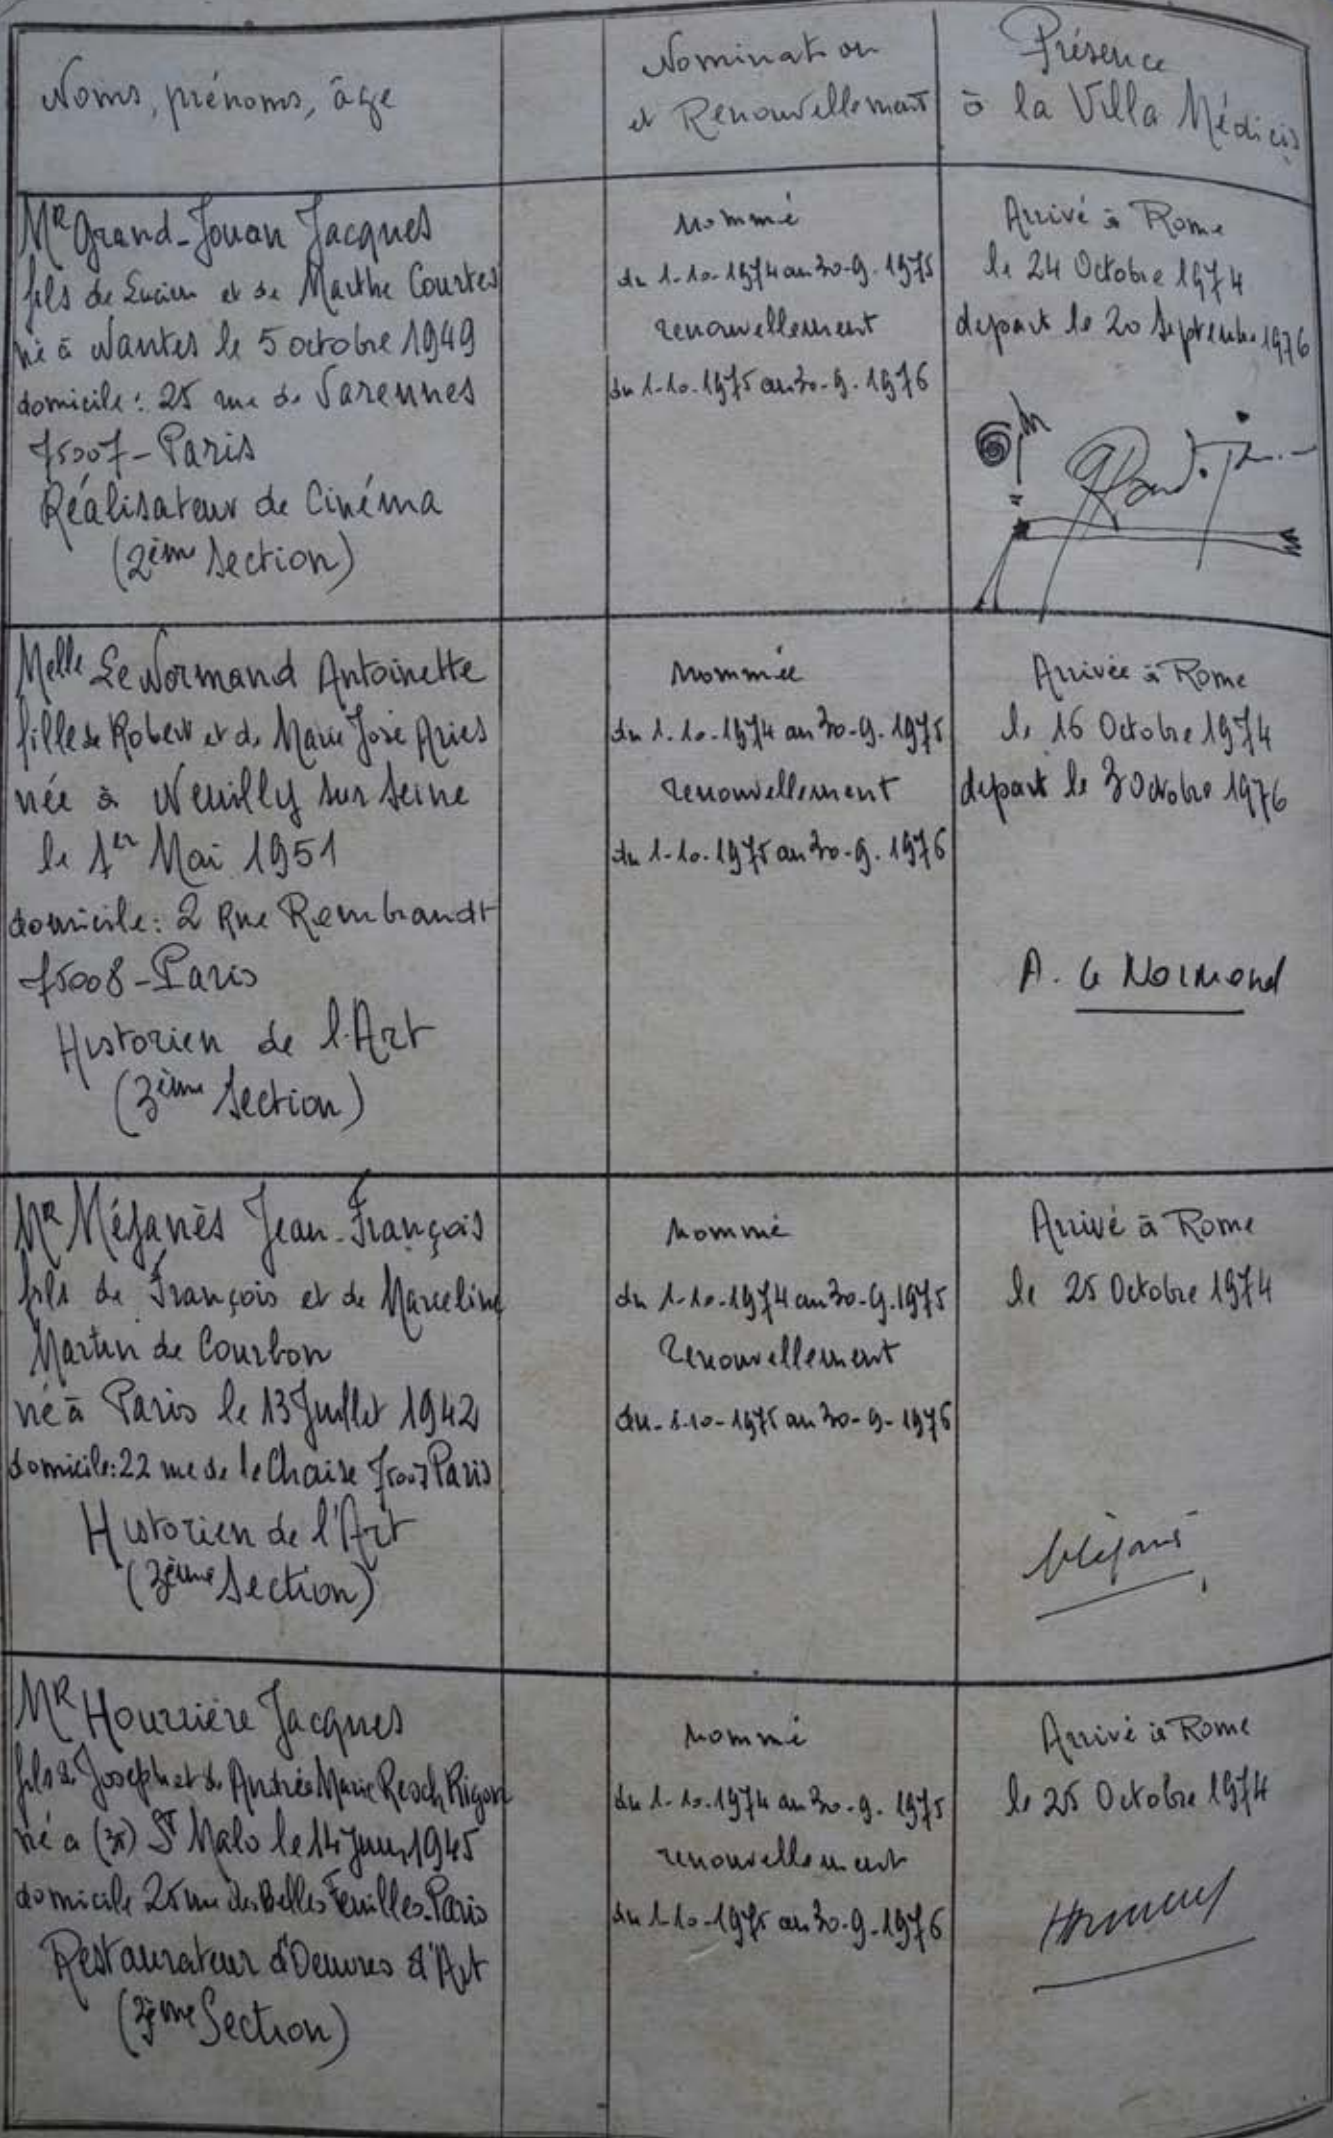 Noms, prénoms, âge
Nomination
et Renouvellement
Présence
à la Villa Médicis
Mr Grand-Jouan Jacques
fils de Lucien et de Marthe Courtes
né à Nantes le 5 octobre 1949
domicile: 25 rue de Varennes
75007-Paris
Réalisateur de Cinéma
(2ème Section)
nommé
du 1-10-1974 au 30-9-1975
renouvellement
du 1-10-1975 au 30-9-1976
Arrivé à Rome
le 24 Octobre 1974
depart le 20 Septembre 1976
Melle Le Normand Antoinette
fille de Robert et de Marie José Aries
née à Neuilly sur Seine
le 1er Mai 1951
domicile: 2 Rue Rembrandt
75008-Paris
Historien de l'Art
(3ème Section)
nommée
du 1-10-1974 au 30-9-1975
renouvellement
du 1-10-1975 au 30-9-1976
Arrivée à Rome
le 16 Octobre 1974
depart le 3 Octobre 1976
A. Le Normand
Mr Méjanès Jean-François
fils de François et de Marceline
Martin de Courbon
né à Paris le 13 Juillet 1942
domicile: 22 rue de la Chaise 75007 Paris
Historien de l'Art
(3ème Section)
nommé
du 1-10-1974 au 30-9-1975
Renouvellement
du 1-10-1975 au 30-9-1976
Arrivé à Rome
le 25 Octobre 1974
Méjanès
Mr Hourrière Jacques
fils de Joseph et de Andrée Marie
né a (35) St Malo le 14 Juin 1945
domicile 25 rue des Belles Feuilles-Paris
Restaurateur d'Oeuvres d'Art
(3ème Section)
nommé
du 1-10-1974 au 30-9-1975
renouvellement
du 1-10-1975 au 30-9-1976
Arrivé à Rome
le 25 Octobre 1974